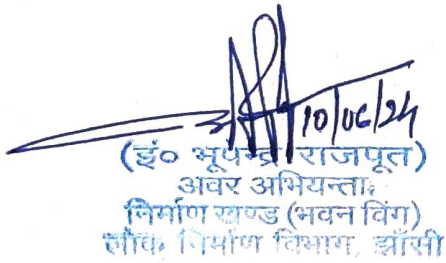 10/06/24
(इं० भूपेन्द्र राजपूत)
अवर अभियन्ता
निर्माण खण्ड (भवन विंग)
लोक निर्माण विभाग, झाँसी